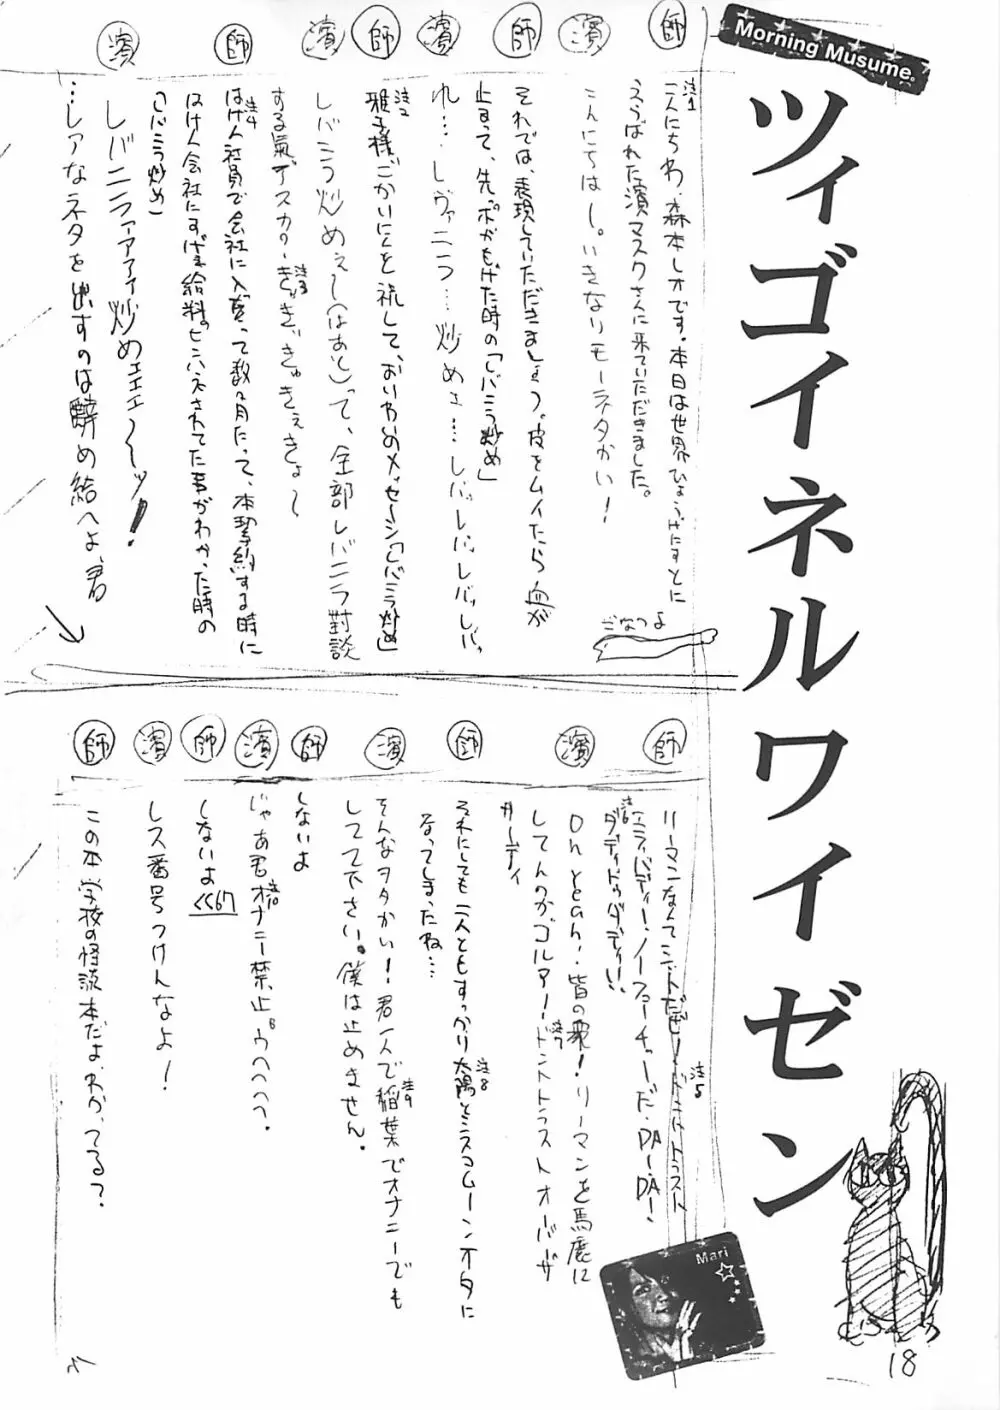 Morning Musume。
ツィゴイネルワイゼン
師
注1
こんにちわ、森本レオです。本日は世界ひょうじゅんすとに
えらばれた濱マスクさんに来ていただきました。
濱
こんにちはー。いきなりモーネタかい!
師
それでは、表現していただきましょう。皮をムイたら血が
止まって、先ッポがもげた時の「レバニラ炒め」
濱
れ…レヴァニラ…炒めェ…レバッレバッレバッレバッ
師
注2
雅子様ごかいにんを祝して、おいわいのメッセージ「レバニラ炒め」
濱
レバニラ炒めぇ〜(はあと)って、全部レバニラ対談
する氣デスカの〜
注3
ぎゃぎぃぎゅぎぇぎょ〜
師
注4
はけん社員で会社に入って数ヶ月たって、本契約する時に
はけん会社にすげぇ給料のピンハネされてた事がわかった時の
「レバニラ炒め」
濱
レバニラァアアア炒めェェェ〜〜ッ!
…レアなネタを出すのは辭め給へよ、君
どなつよ
師
注5
リーマンなんてシットだぜ!ドントトラスト
注6
エニィバディー!ノーフューチャーだ、DA!DA!
ダディドゥダディ!!
濱
Oh yeah!皆の衆!リーマンを馬鹿に
してんのかゴルアー!
注7
ドントトラストオーバー
サーティ
師
それにしても二人ともすっかり
注8
太陽とシスコムーンオタに
なってしまったね…
濱
そんなヲタかい!君一人で
注9
稲葉でオナニーでも
してて下さい。僕は止めません。
師
しないよ
濱
じゃあ君
注10
オナニー禁止ヴへへへへ。
師
しないよ <<67
濱
レス番号つけんなよ!
師
この本学校の怪談本だよ、わかってる?
Mari
18